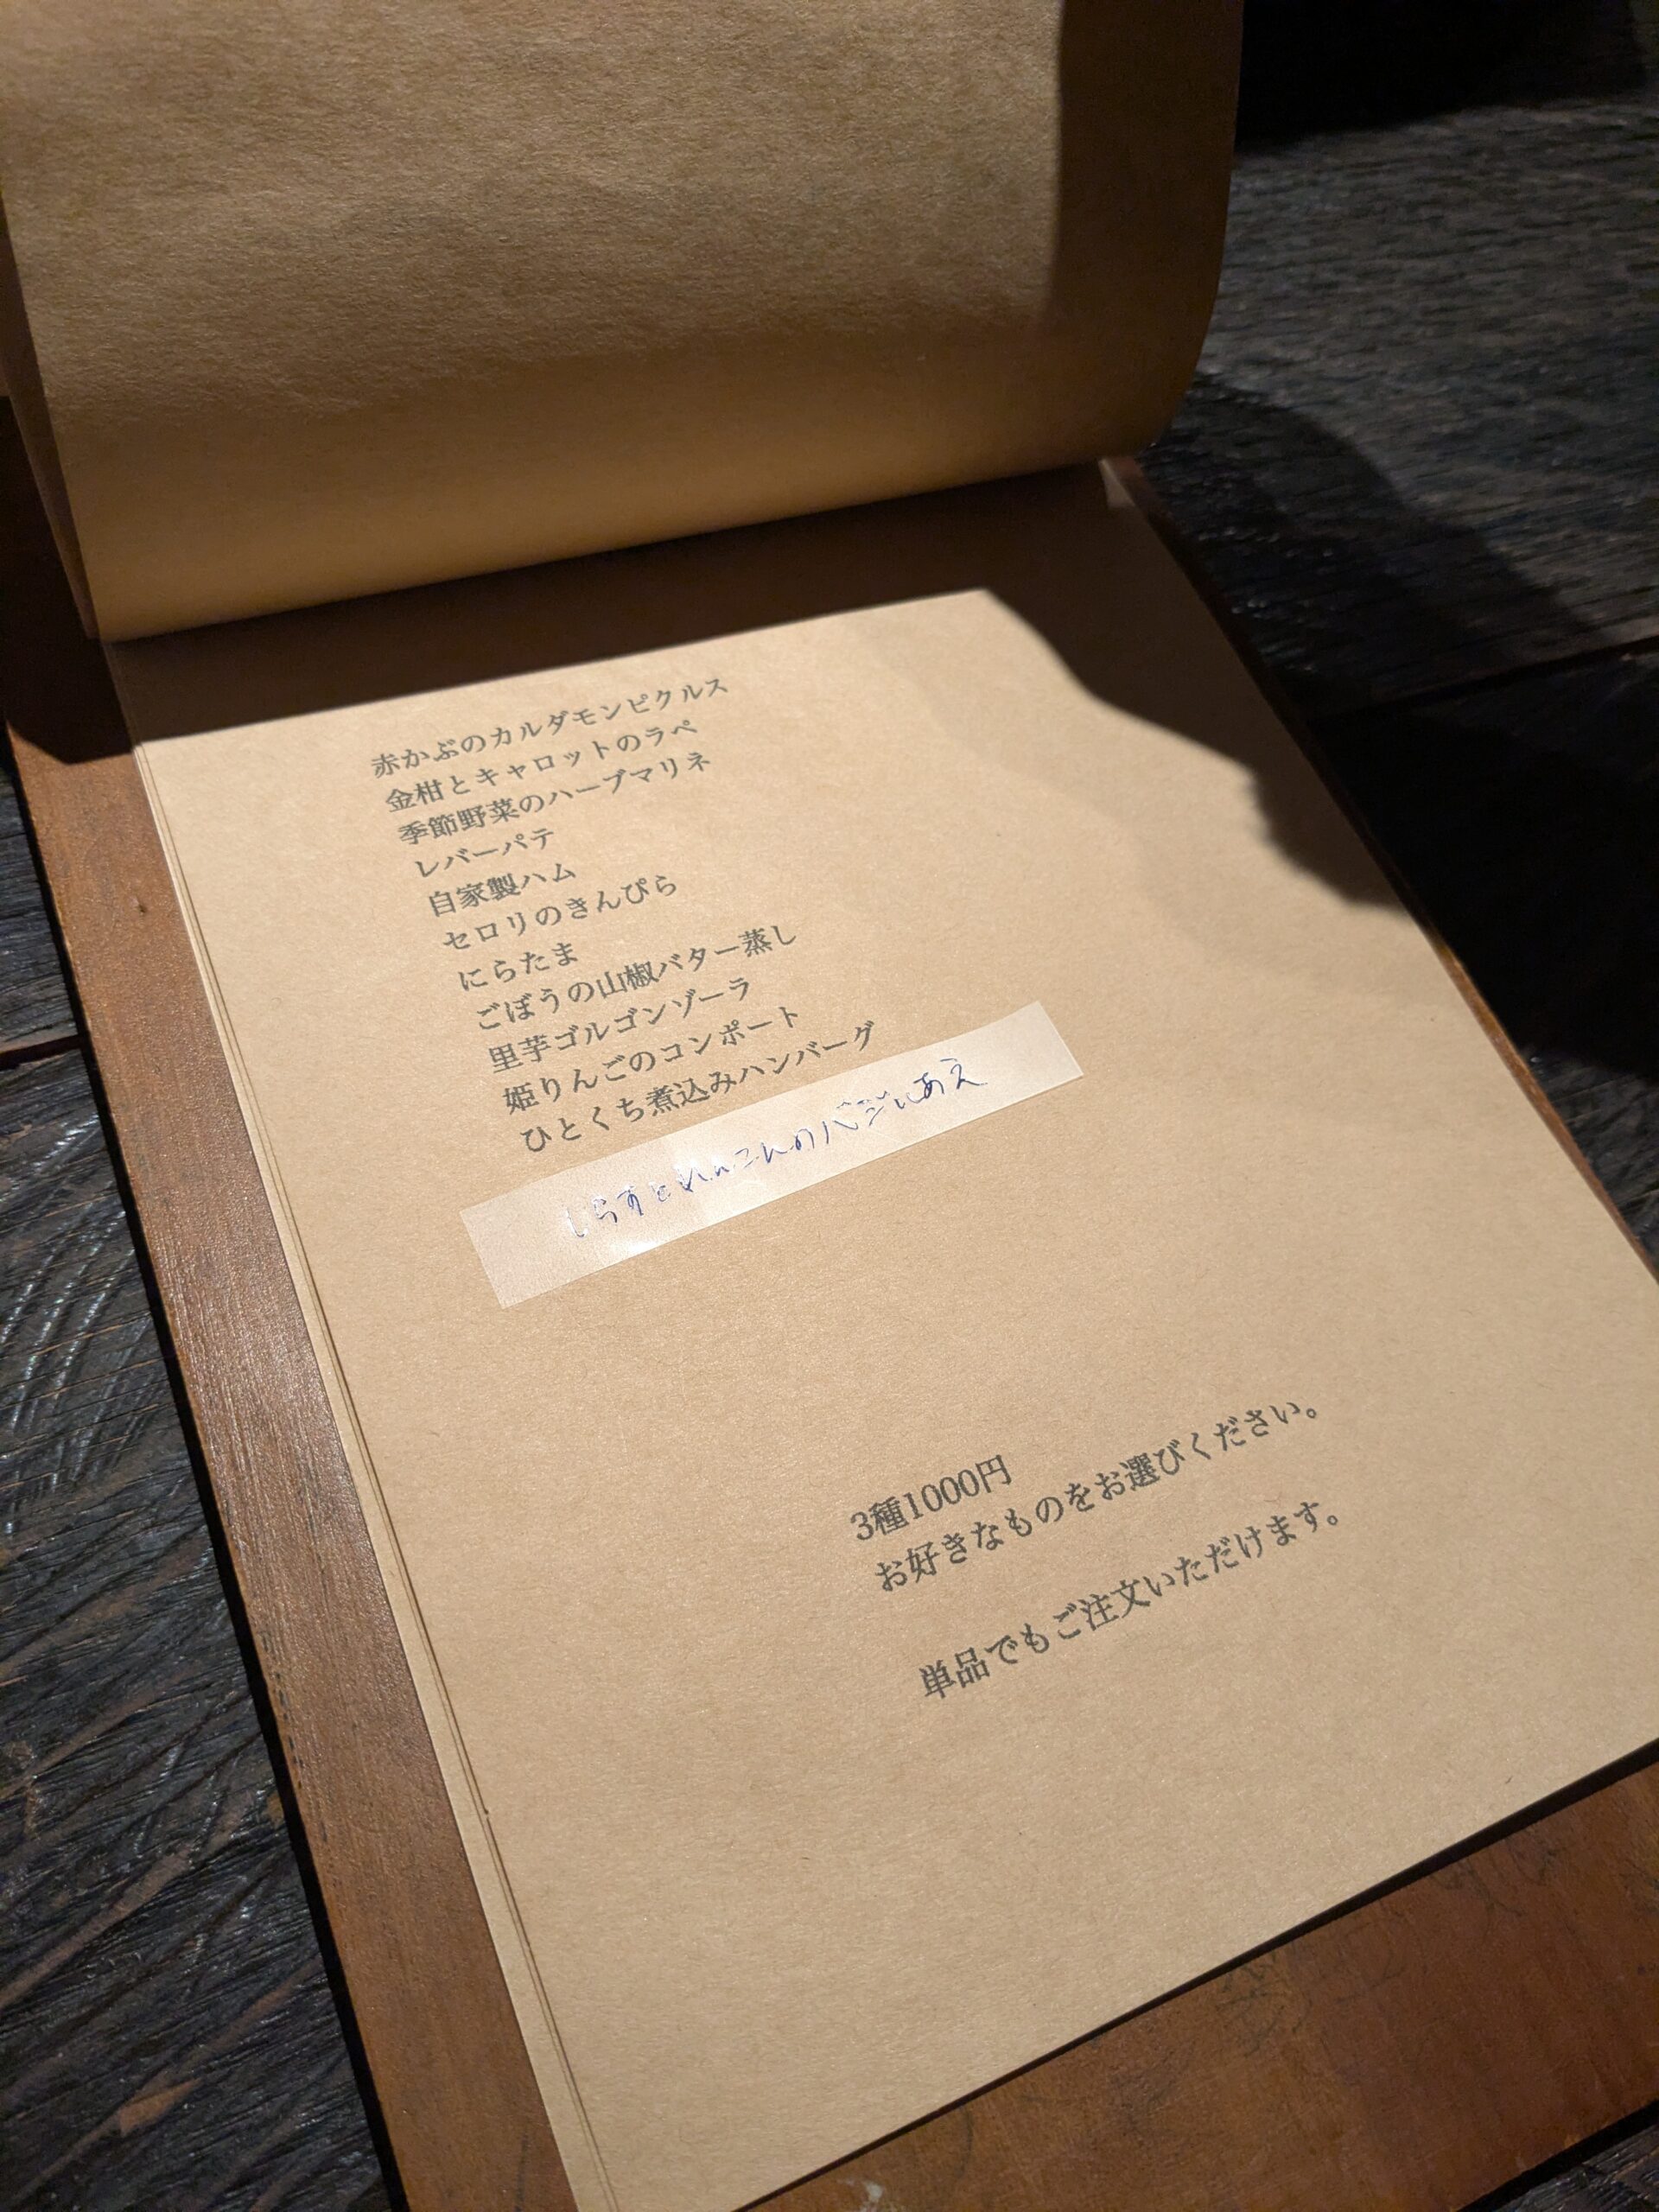 赤かぶのカルダモンピクルス
金柑とキャロットのラペ
季節野菜のハーブマリネ
レバーパテ
自家製ハム
セロリのきんぴら
にらたま
ごぼうの山椒バター蒸し
里芋ゴルゴンゾーラ
姫りんごのコンポート
ひとくち煮込みハンバーグ
しらすとれんこんのバジルあえ
3種1000円
お好きなものをお選びください。
単品でもご注文いただけます。